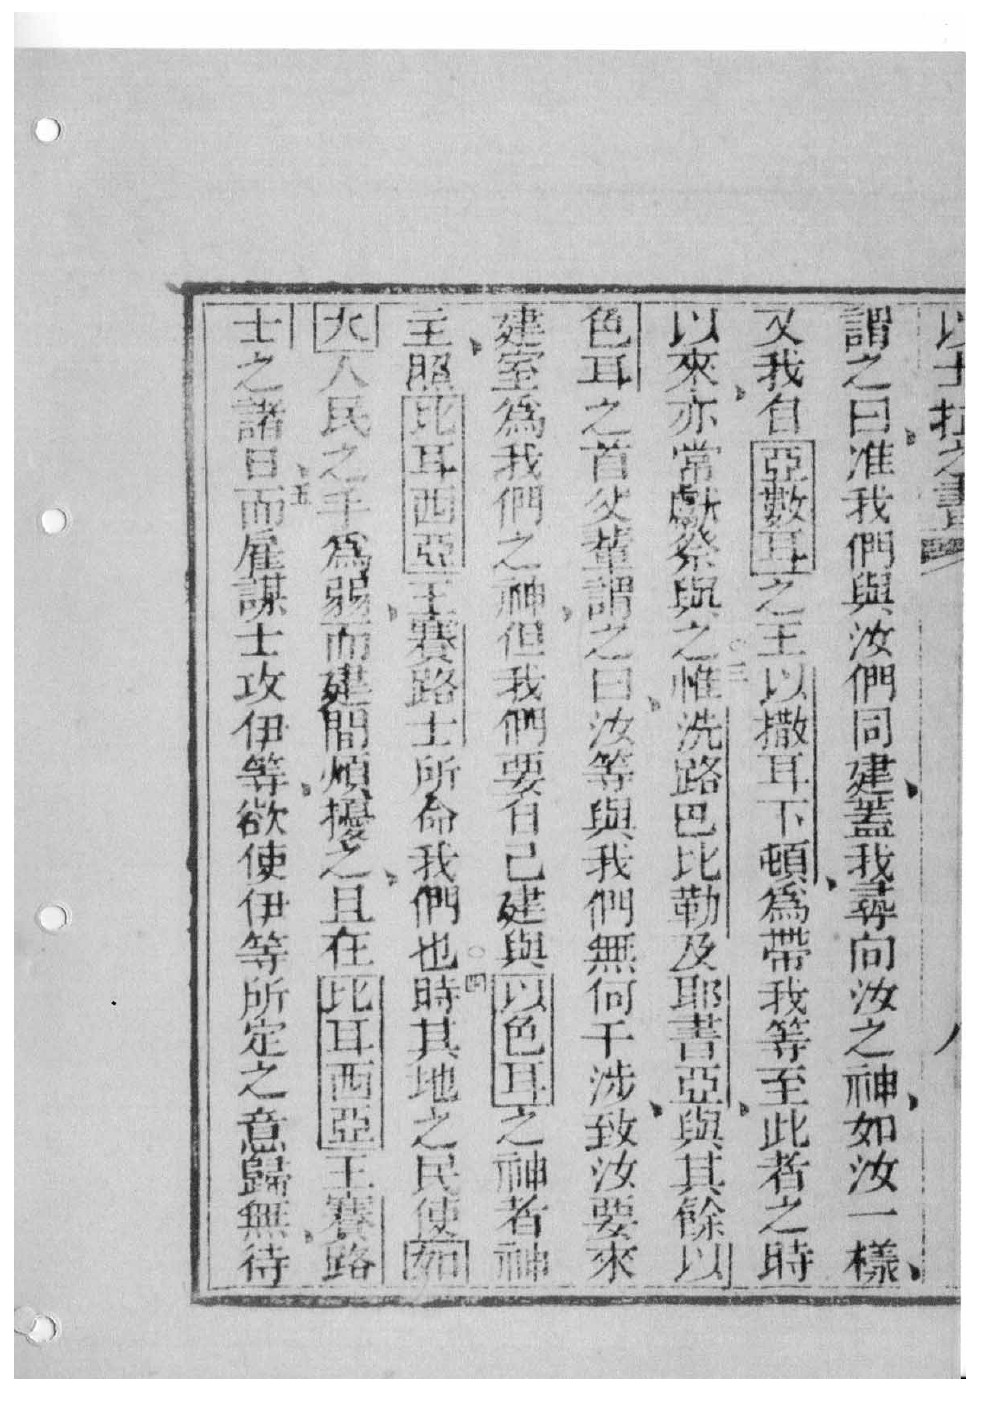 以士拉之書 八
謂之曰准我們與汝們同建蓋我尋向汝之神如汝一樣
又我自亞數耳之王以撒耳下頓為帶我等至此者之時
以來亦常獻祭與之○三惟洗路巴比勒及耶書亞與其餘以
色耳之首父輩謂之曰汝等與我們無何干涉致汝要來
建室為我們之神但我們要自己建與以色耳之神者神
主照比耳西亞王賽路士所命我們也○四時其地之民使如
大人民之手為弱而建間煩擾之五且在比耳西亞王賽路
士之諸日而雇謀士攻伊等欲使伊等所定之意歸無待